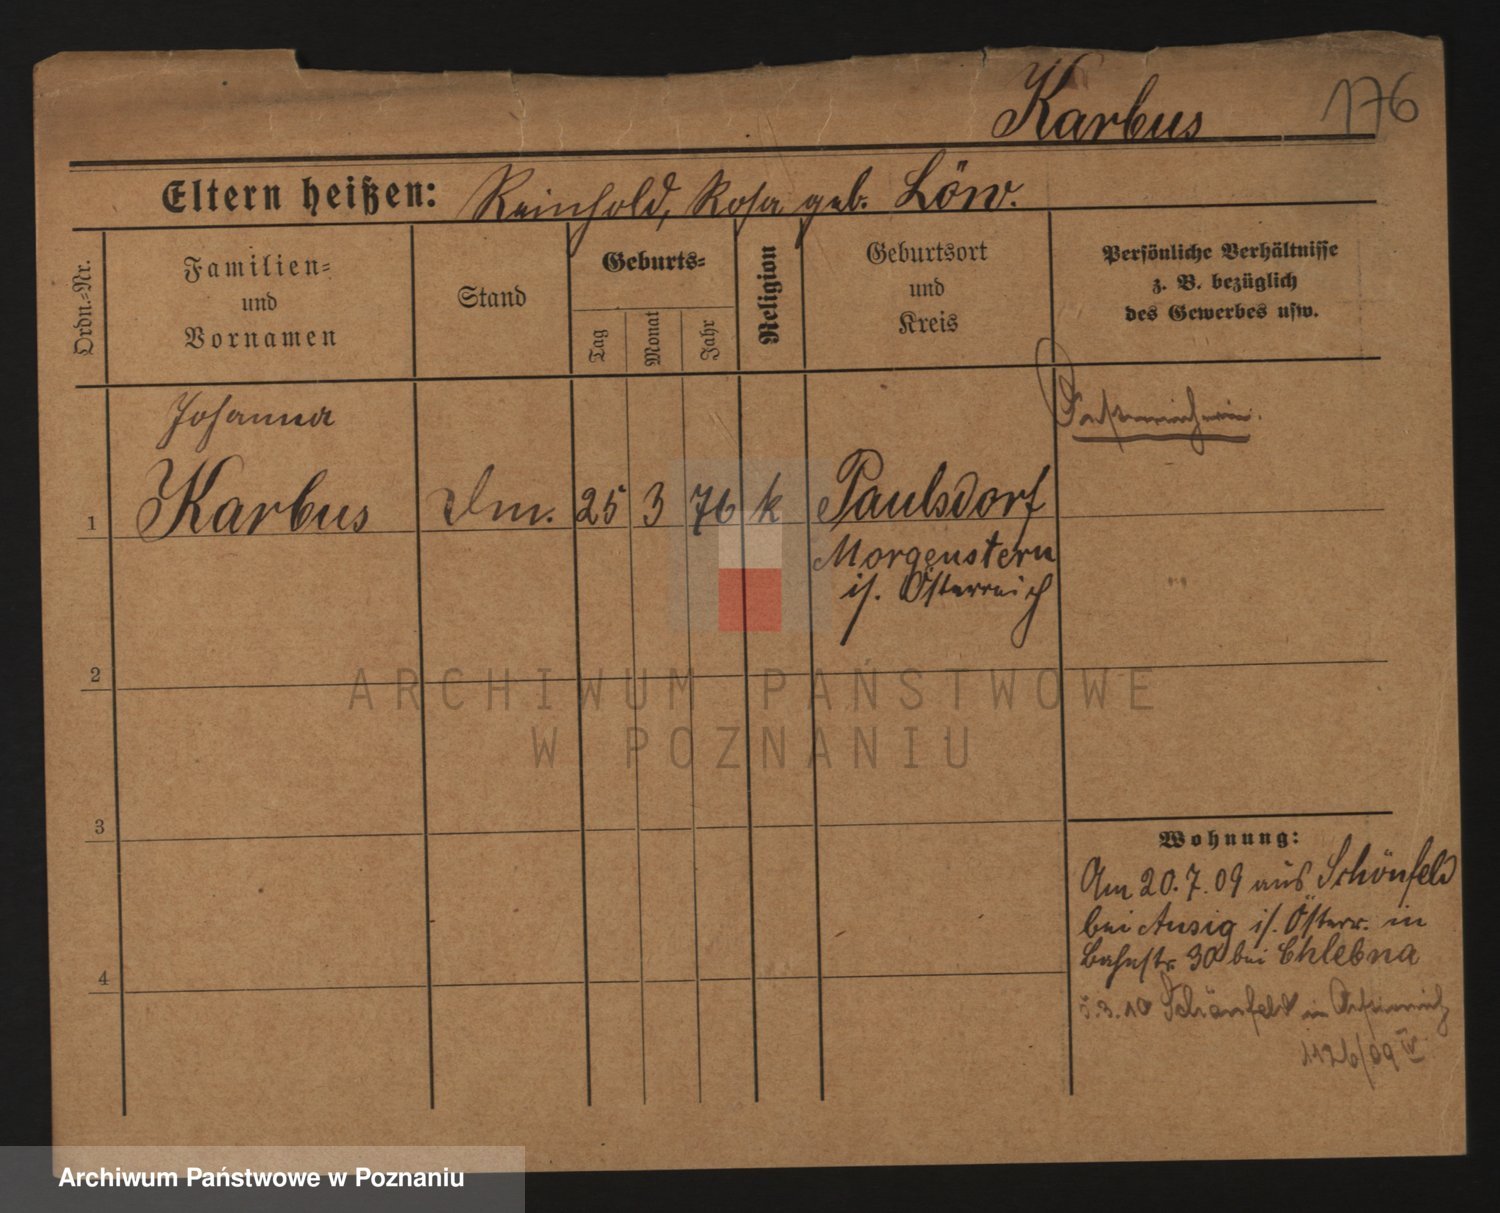 Karbus 176
Eltern heißen: Reinhold, Rosa geb. Löw.
Ordn.=Nr.
Familien=
und
Vornamen
Stand
Geburts=
Tag
Monat
Jahr
Religion
Geburtsort
und
Kreis
Persönliche Verhältnisse
z. B. bezüglich
des Gewerbes usw.
Johanna
Österreicherin.
1 Karbus 25 3 76 k Paulsdorf
Morgenstern
i/. Österreich
2
3
4
Wohnung:
Am 20.7.09 aus Schönfeld
bei Ausig i/. Österr. in
Bahnstr 30 bei Chlebna
5.3.10 Schönfeld in Österreich
1176/09 IV
ARCHIWUM PAŃSTWOWE
W POZNANIU
Archiwum Państwowe w Poznaniu